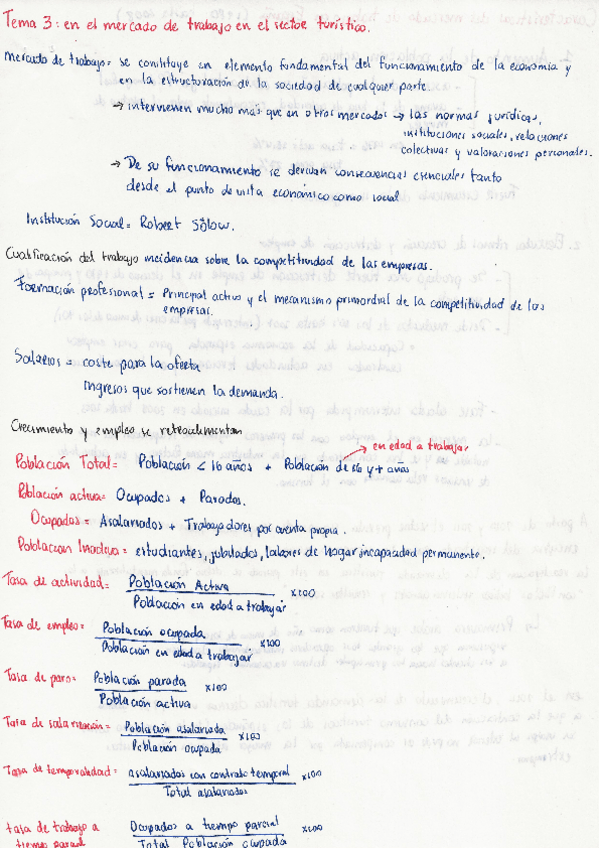 Tema 3: en el mercado de trabajo en el sector turístico.
Mercado de trabajo= se constituye en elemento fundamental del funcionamiento de la economía y
en la estructuración de la sociedad de cualquier parte.
→ intervienen mucho más que en otros mercados → las normas jurídicas,
instituciones sociales, relaciones
colectivas y valoraciones personales.
→ De su funcionamiento se derivan consecuencias esenciales tanto
desde el punto de vista económico como social
Institución Social= Robert Sólow.
Cualificación del trabajo incidencia sobre la competitividad de las empresas.
Formación profesional = Principal activo y el mecanismo primordial de la competitividad de las
empresas.
Salarios = coste para la oferta
ingresos que sostienen la demanda.
Crecimiento y empleo se retroalimentan
→ en edad a trabajar
Población Total= Población < 16 años + Población de 16 y + años
Población activa= Ocupados + Parados.
Ocupados = Asalariados + Trabajadores por cuenta propia.
Poblacion Inactiva = estudiantes, jubilados, labores de hogar, incapacidad permanente.
Tasa de actividad= Población Activa x100
Población en edad a trabajar
Tasa de empleo= Población ocupada x100
Población en edad a trabajar
Tasa de paro= Población parada x100
Población activa
Tasa de salarización= Población asalariada x100
Población ocupada
Tasa de temporalidad= asalariados con contrato temporal x100
Total asalariados
tasa de trabajo a Ocupados a tiempo parcial x100
tiempo parcial Total Población ocupada